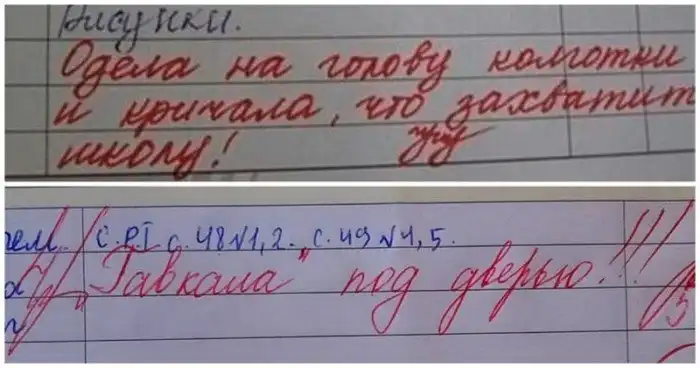 Рисунки.
Одела на голову колготки
и кричала, что захватит
школу!
С.P.I с. 48 №1, 2. с. 49 №4, 5.
„Гавкала" под дверью!!!